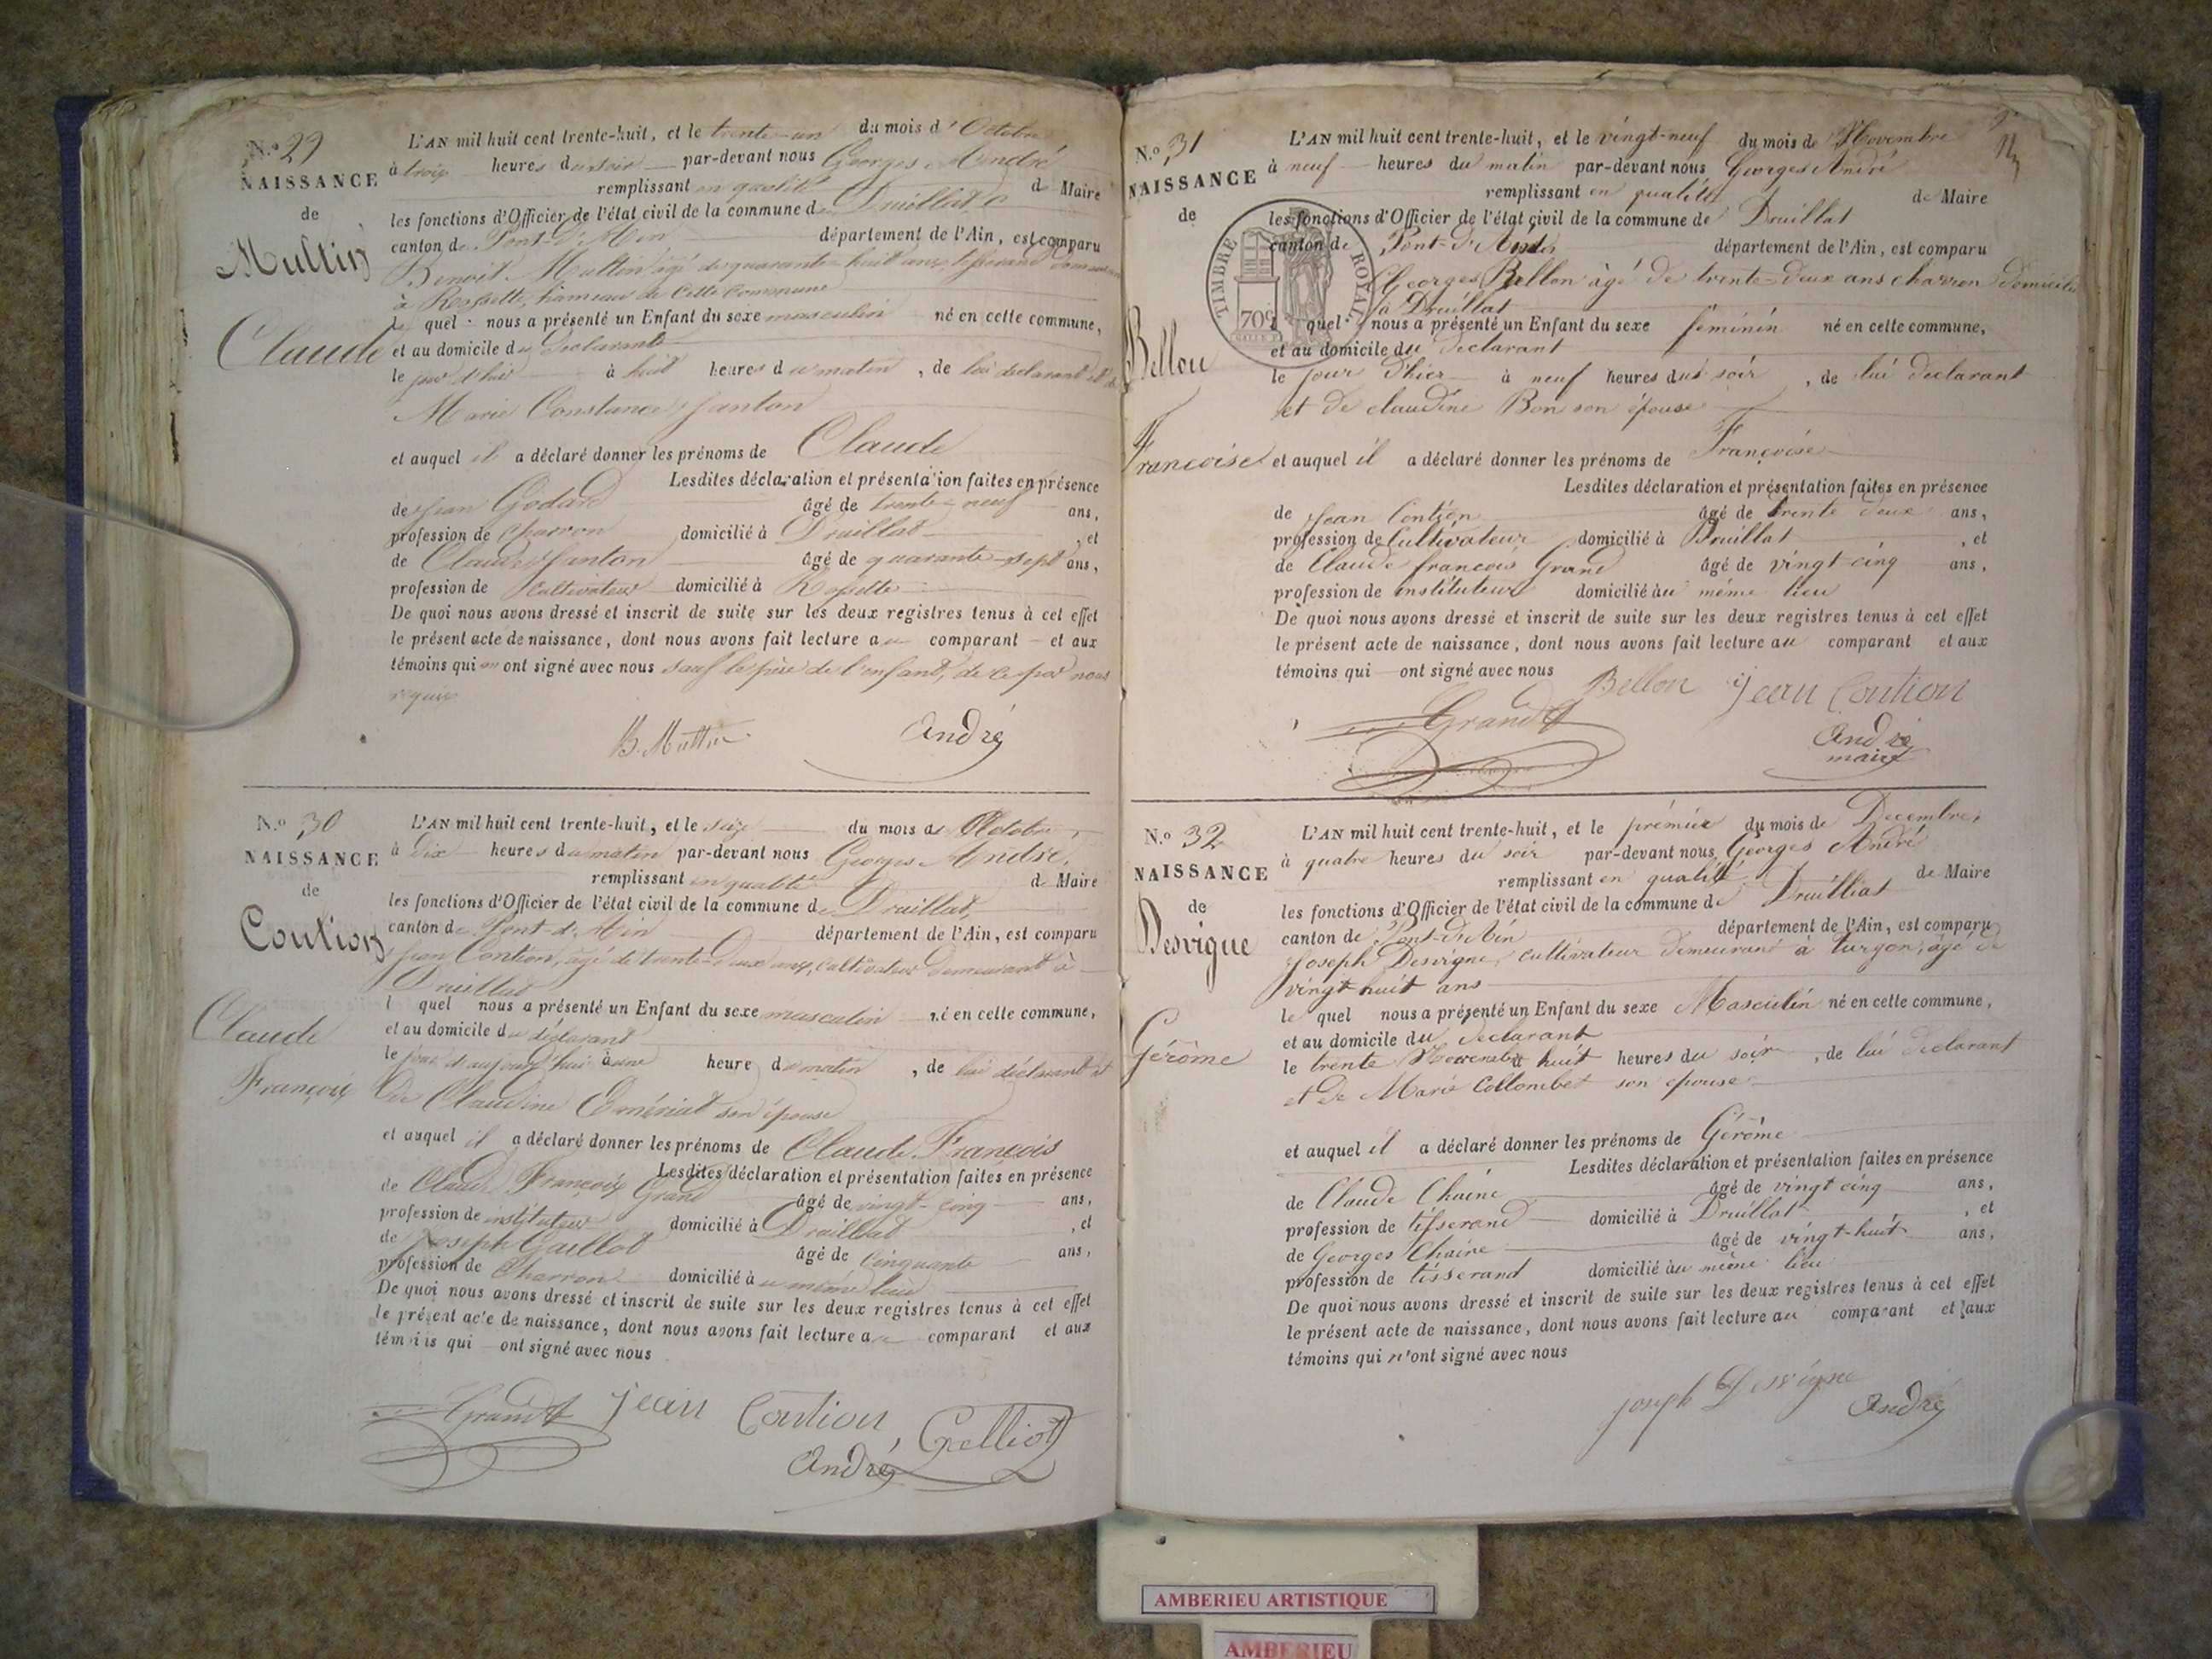 N.o 29
NAISSANCE
de
Multin
Claude
L'AN mil huit cent trente-huit, et le trente-un du mois d'Octobre
à trois heures du soir par-devant nous Georges André
remplissant en qualité de Maire
les fonctions d'Officier de l'état civil de la commune de Druillat
canton de Pont-d'Ain département de l'Ain, est comparu
Benoit Multin âgé de quarante-huit ans, tisserand
à Rossette, hameau de cette Commune
le quel nous a présenté un Enfant du sexe masculin né en cette commune,
et au domicile du declarant
le jour d'hier à huit heures du matin, de lui declarant et de
Marie Constance Janton
et auquel il a déclaré donner les prénoms de Claude
Lesdites déclaration et présentation faites en présence
de Jean Godard âgé de trente-neuf ans,
profession de charron domicilié à Druillat, et
de Claude Janton âgé de quarante-sept ans,
profession de Cultivateur domicilié à Rossette
De quoi nous avons dressé et inscrit de suite sur les deux registres tenus à cet effet
le présent acte de naissance, dont nous avons fait lecture au comparant et aux
témoins qui ont signé avec nous sauf le père de l'enfant, de ce par nous
requis
B. Multin André
N.o 30
NAISSANCE
de
Coution
Claude
François
L'AN mil huit cent trente-huit, et le seize du mois d' Octobre,
à Dix heures du matin par-devant nous Georges André,
remplissant en qualité de Maire
les fonctions d'Officier de l'état civil de la commune de Druillat,
canton de Pont-d'Ain département de l'Ain, est comparu
Jean Contion, âgé de trente-deux ans, cultivateur demeurant à
Druillat
l quel nous a présenté un Enfant du sexe masculin né en cette commune,
et au domicile du déclarant
le jour d'aujourd'hui à une heure du matin, de lui déclarant et
de Claudine son épouse
et auquel il a déclaré donner les prénoms de Claude François
Lesdites déclaration et présentation faites en présence
de Claude François Grand âgé de vingt-cinq ans,
profession de instituteur domicilié à Druillat, et
de Joseph Gaillot âgé de Cinquante ans,
profession de Charron domicilié au même lieu
De quoi nous avons dressé et inscrit de suite sur les deux registres tenus à cet effet
le présent acte de naissance, dont nous avons fait lecture au comparant et aux
témoins qui ont signé avec nous
Grand jean Coution Gelliot
André
N.o 31
NAISSANCE
de
Bellon
Francoise
TIMBRE ROYAL
70c
L'AN mil huit cent trente-huit, et le vingt-neuf du mois de Novembre
à neuf heures du matin par-devant nous Georges André
remplissant en qualité de Maire
les fonctions d'Officier de l'état civil de la commune de Druillat
canton de Pont-d'Ain département de l'Ain, est comparu
Georges Bellon âgé de trente-deux ans charron domicilié
à Druillat
quel nous a présenté un Enfant du sexe féminin né en cette commune,
et au domicile du declarant
le jour d'hier à neuf heures du soir, de lui declarant
et de claudine Bon son épouse
et auquel il a déclaré donner les prénoms de Françoise
Lesdites déclaration et présentation faites en présence
de Jean Contion âgé de trente deux ans,
profession de Cultivateur domicilié à Druillat, et
de Claude françois Grand âgé de vingt-cinq ans,
profession de instituteur domicilié au même lieu
De quoi nous avons dressé et inscrit de suite sur les deux registres tenus à cet effet
le présent acte de naissance, dont nous avons fait lecture au comparant et aux
témoins qui ont signé avec nous
Bellon jean Coution
Grand
André
maire
N.o 32
NAISSANCE
de
Desvigne
Gérôme
L'AN mil huit cent trente-huit, et le prémier du mois de Decembre,
à quatre heures du soir par-devant nous Georges André
remplissant en qualité de Maire
les fonctions d'Officier de l'état civil de la commune de Druilliat
canton de Pont-d'Ain département de l'Ain, est comparu
Joseph Desvigne, cultivateur demeurant à turgon, âgé de
vingt huit ans
le quel nous a présenté un Enfant du sexe Masculin né en cette commune,
et au domicile du declarant
le trente Novembre à huit heures du soir, de lui declarant
et de Marie Collombet son epouse
et auquel il a déclaré donner les prénoms de Gérôme
Lesdites déclaration et présentation faites en présence
de Claude Chaine âgé de vingt cinq ans,
profession de tisserand domicilié à Druillat, et
de Georges Chaine âgé de vingt-huit ans,
profession de tisserand domicilié au même lieu
De quoi nous avons dressé et inscrit de suite sur les deux registres tenus à cet effet
le présent acte de naissance, dont nous avons fait lecture au comparant et aux
témoins qui n'ont signé avec nous
joseph Desvigne
André
AMBERIEU ARTISTIQUE
AMBERIEU